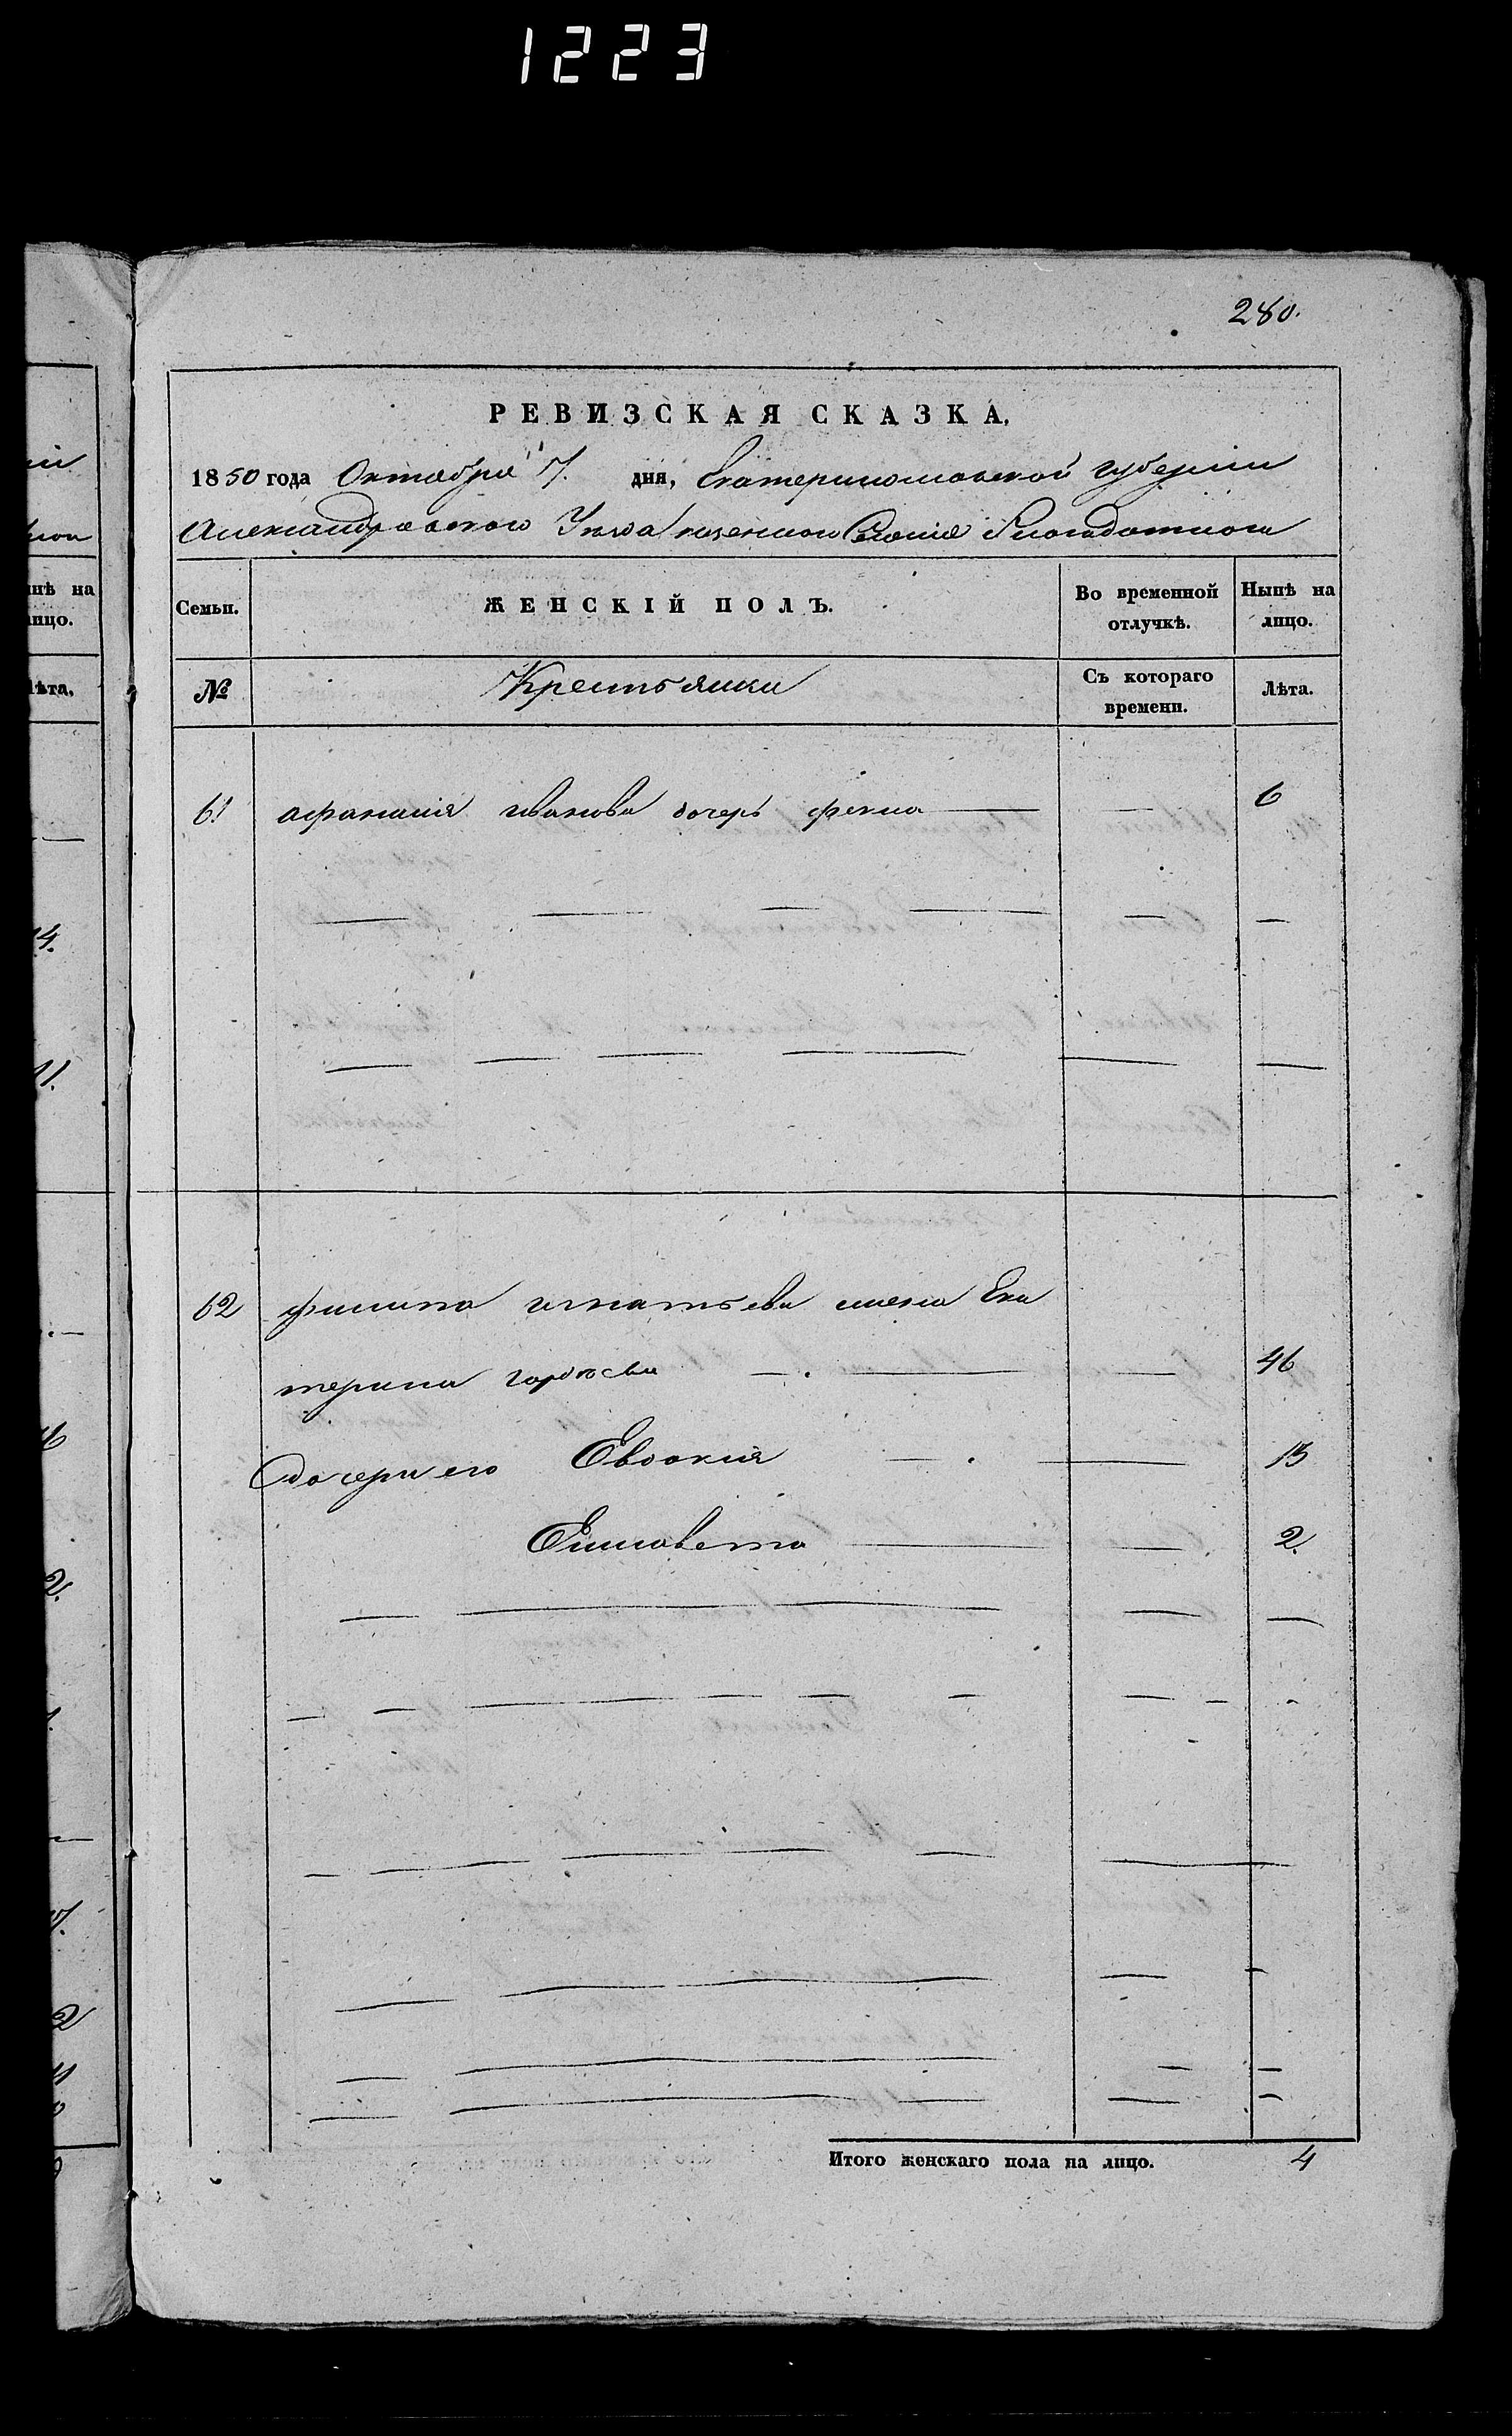 1223
280.
РЕВИЗСКАЯ СКАЗКА.
1850 года Октября 7. дня, Екатеринославской губернии
Александровского Уезда казенного Селения Благодатного
Семьи.
ЖЕНСКІЙ ПОЛЪ.
Во временной отлучкѣ.
Нынѣ на лицо.
№
Крестьянки
Съ котораго времени.
Лѣта.
61 афанасия иванова дочерь фекла — — 6
62 филипа игнатьева жена Ека
терина гордѣева — — 46
дочери его Евдокия — — 13
Елисовета — — 2.
Итого женскаго пола на лицо. 4
нѣ на
лицо.
Лѣта.
14.
11.
2.